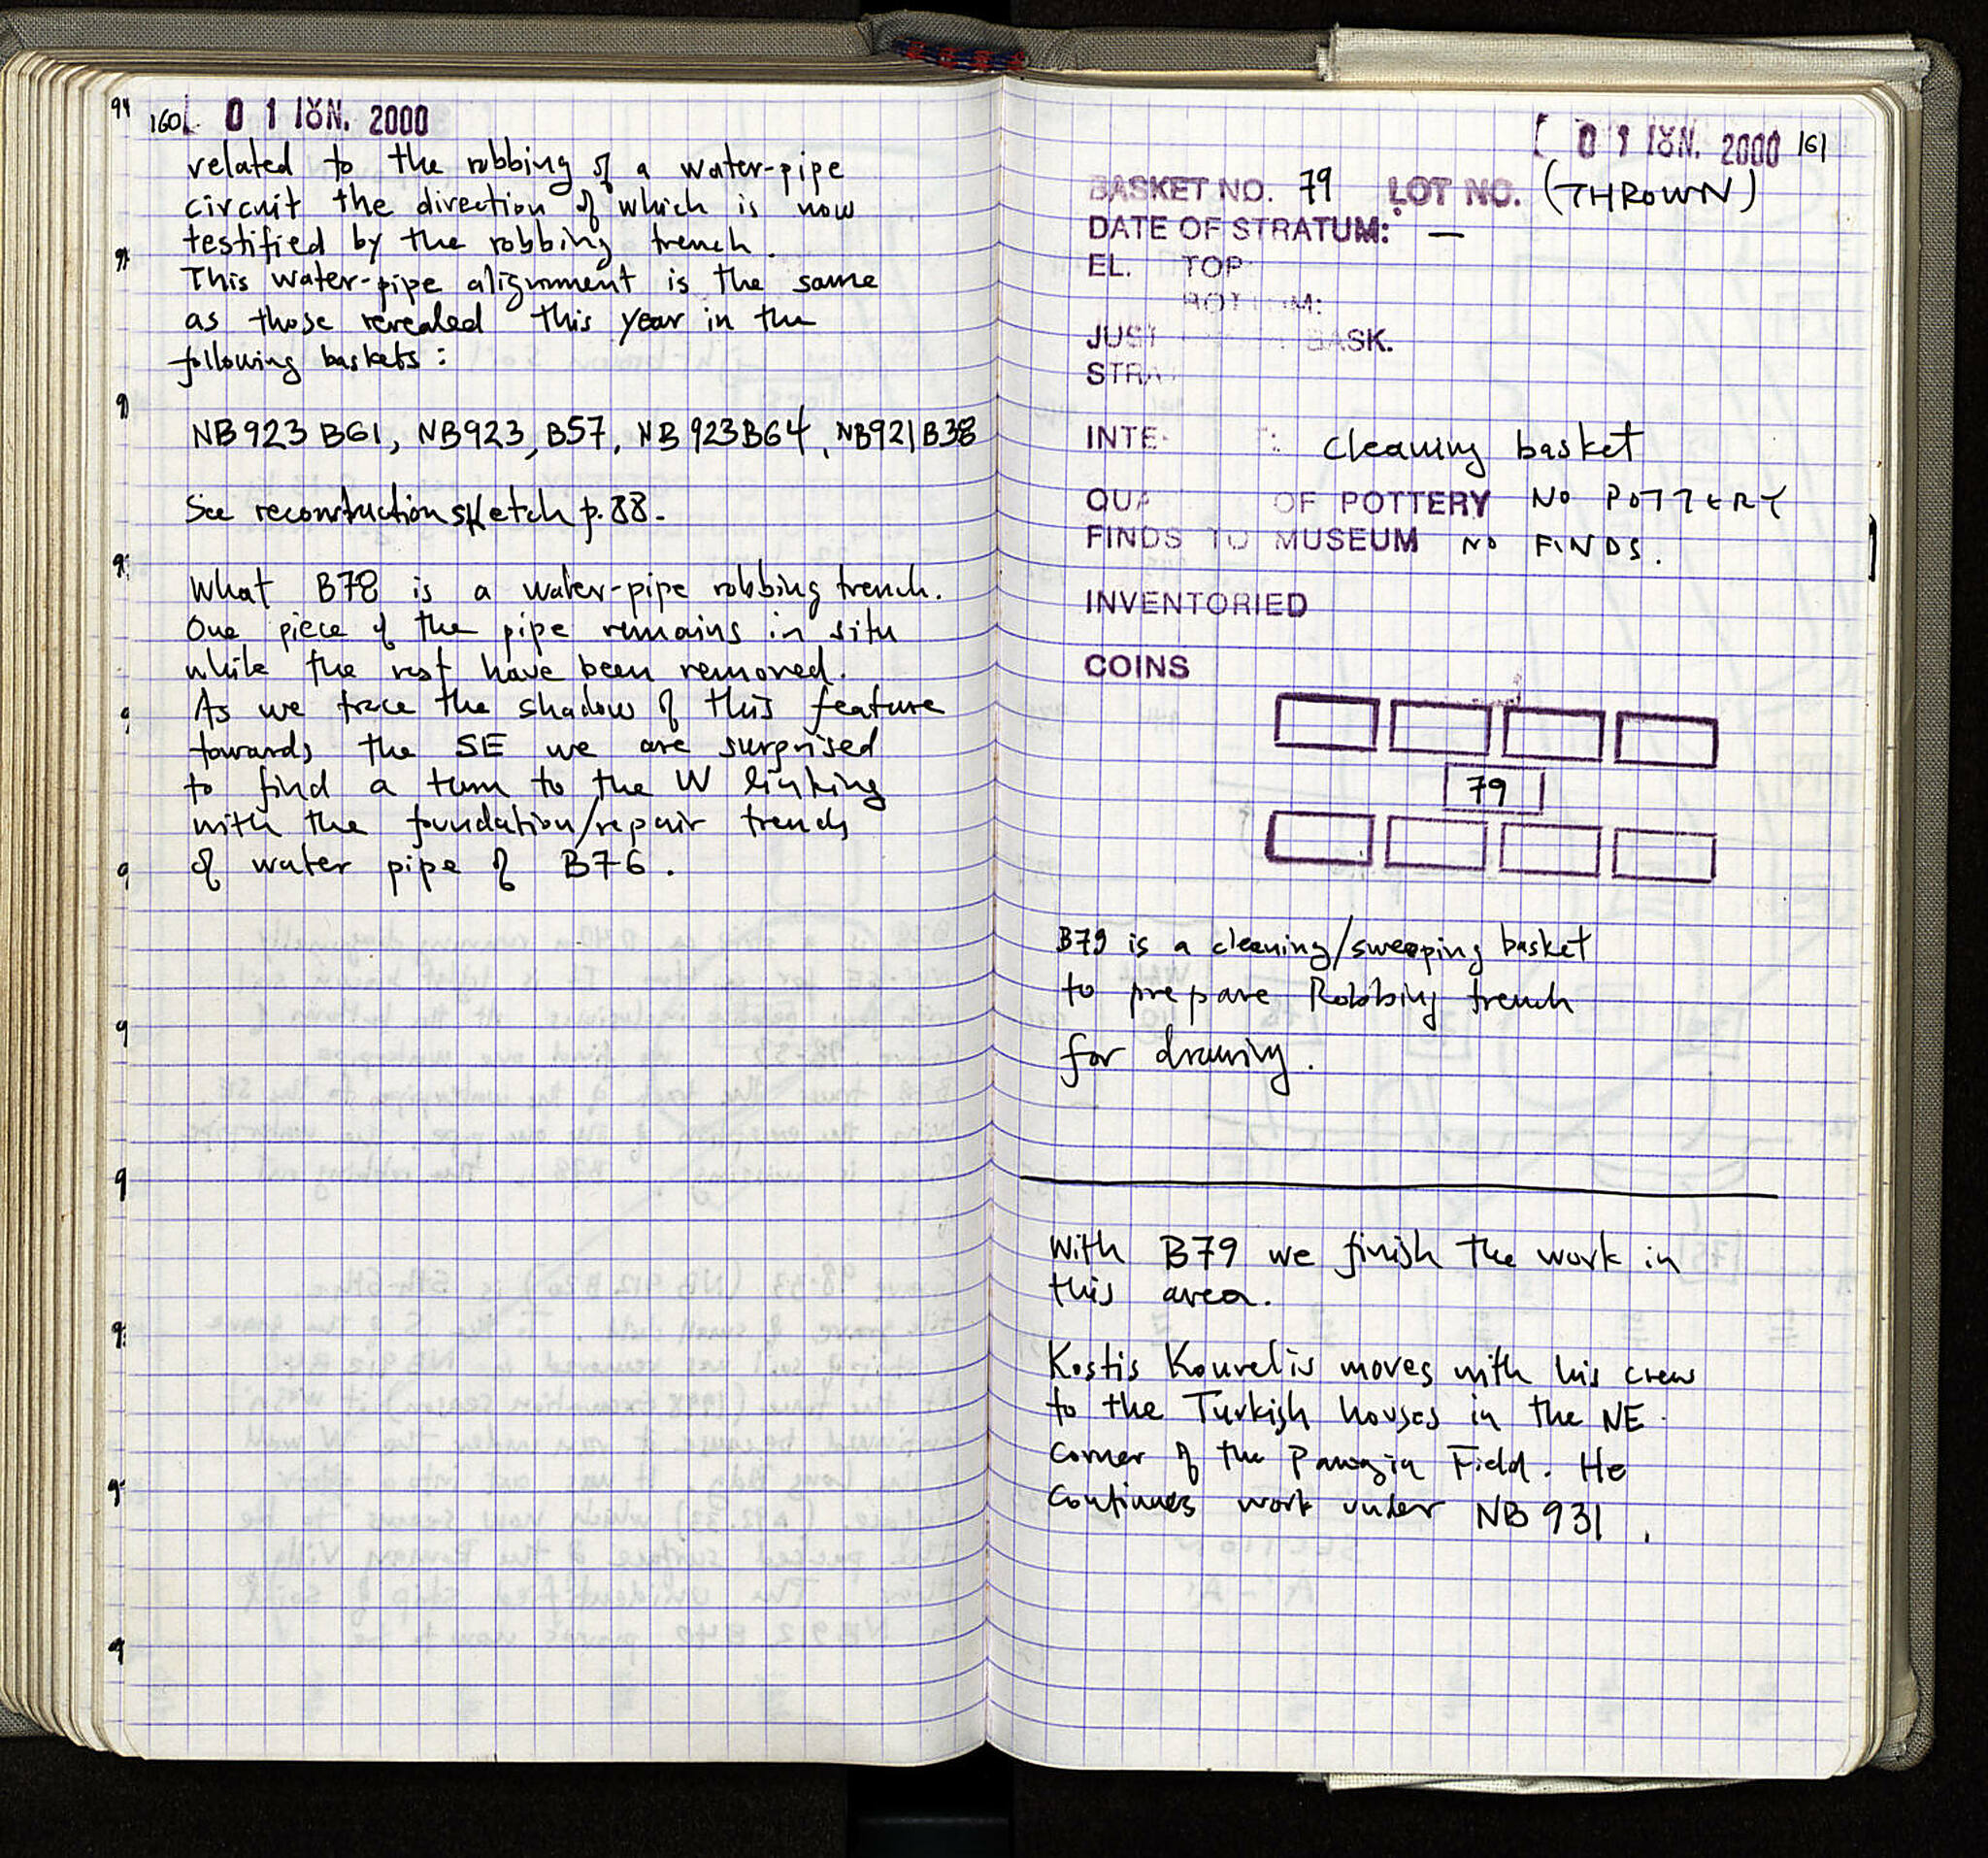 160
01 ΙΟΥΝ. 2000
related to the robbing of a water-pipe
circuit the direction of which is now
testified by the robbing trench.
This water-pipe alignment is the same
as those revealed this year in the
following baskets:
NB923 B61, NB923, B57, NB923B64, NB921B38
See reconstruction sketch p. 88.
What B78 is a water-pipe robbing trench.
One piece of the pipe remains in situ
while the rest have been removed.
As we trace the shadow of this feature
towards the SE we are surprised
to find a turn to the W linking
with the foundation/repair trench
of water pipe of B76.
01 ΙΟΥΝ. 2000 161
BASKET NO. 79 LOT NO. (THROWN)
DATE OF STRATUM: —
EL. TOP:
BOTTOM:
JUST BASK.
STRA
INTE : cleaning basket
QUA OF POTTERY NO POTTERY
FINDS TO MUSEUM NO FINDS.
INVENTORIED
COINS
79
B79 is a cleaning/sweeping basket
to prepare Robbing trench
for drawing.
With B79 we finish the work in
this area.
Kostis Kourelis moves with his crew
to the Turkish houses in the NE
corner of the Panagia Field. He
continues work under NB 931.